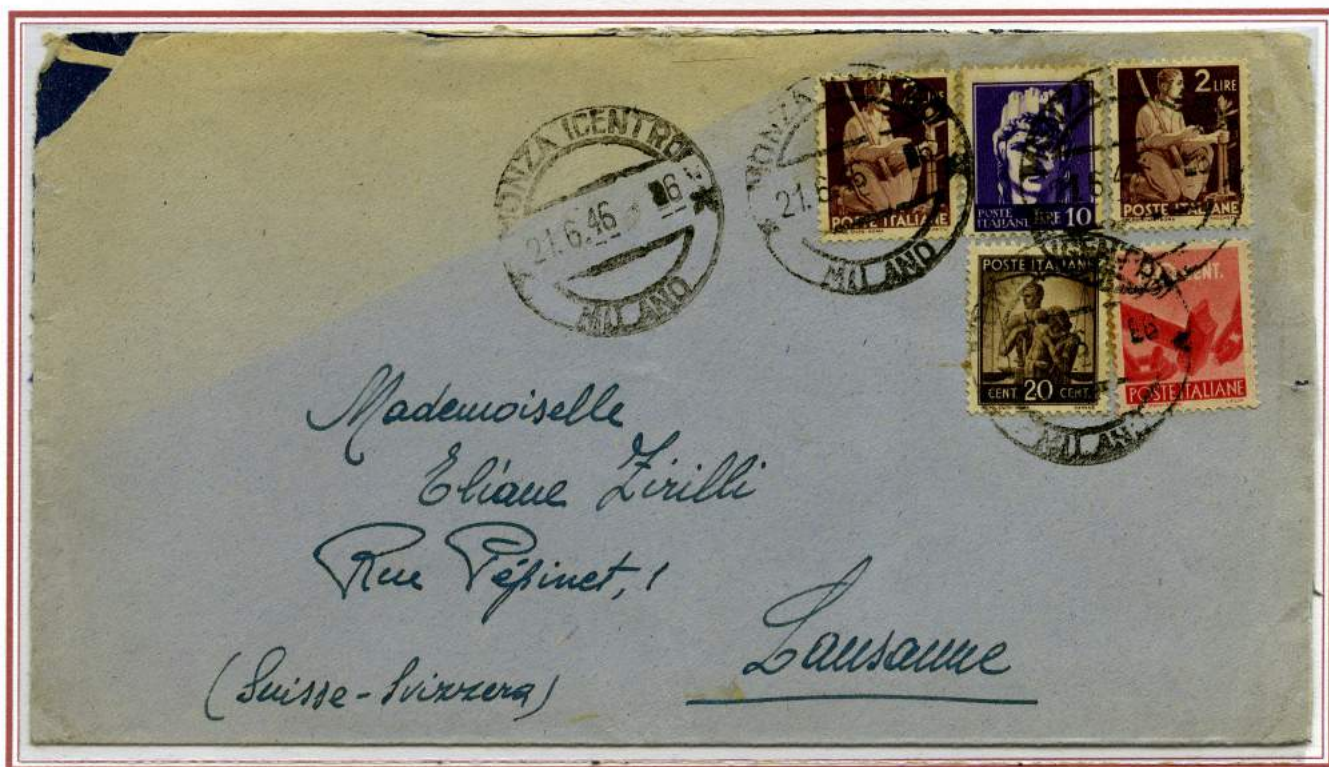 MONZA (CENTRO)
21.6.46
MILANO
MONZA
21.6.46
MILANO
POSTE ITALIANE
POSTE ITALIANE LIRE 10
2 LIRE
POSTE ITALIANE
POSTE ITALIANE
CENT. 20 CENT.
CENT.
POSTE ITALIANE
MILANO
Mademoiselle
Eliane Zirilli
Rue Pépinet, 1
Lausanne
(Suisse-Svizzera)